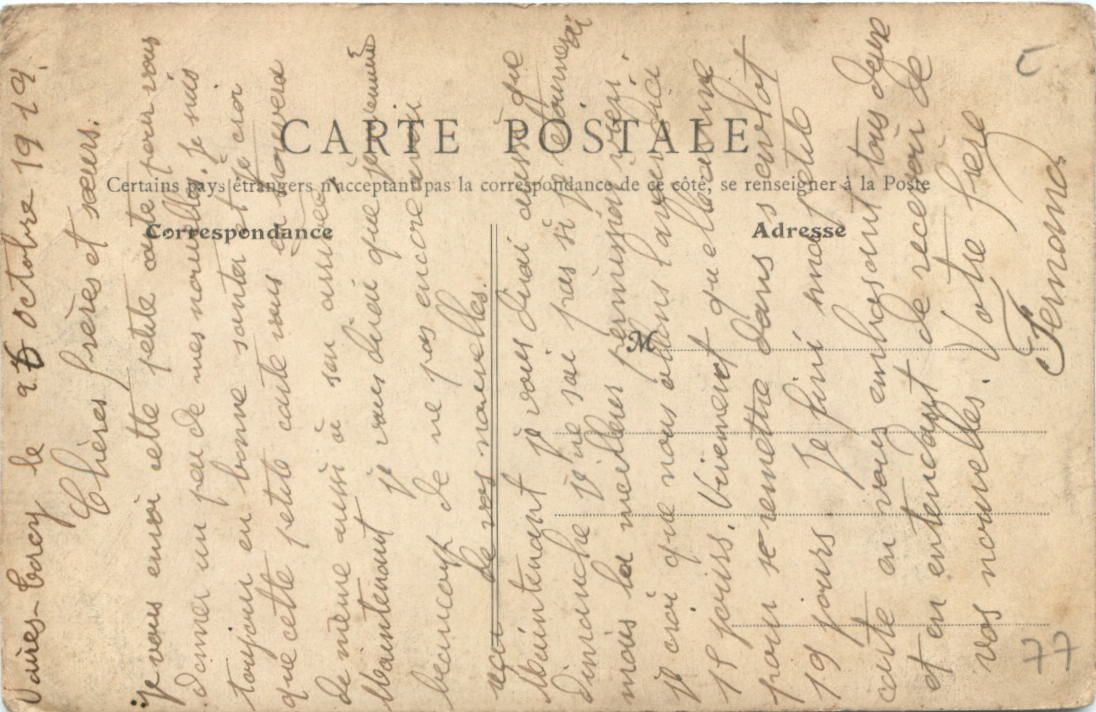 CARTE POSTALE
Certains pays étrangers n'acceptant pas la correspondance de ce côté, se renseigner à la Poste
Correspondance
Adresse
M
Vaires-Torcy le 26 Octobre 1919.
Chères frères et sœurs.
Je vous envoi cette petite carte pour vous
donner un peu de mes nouvelles, je suis
toujours en bonne santer et je croi
que cette petite carte vous en trouvera
de même aussi à son arrivée
Maintenant je vous direi que je
beaucoup de ne pas encore avoir
de vos nouvelles.
Maintenant je vous dirai aussi que
dimanche je ne sai pas si je retournerai
mois la meilleurs permission.
je croi que nous allons l'avoir d'ici
15 jours. Vivement qu'elle arrive
pour se remettre dans
19 jours. Je fini ma petite
carte en vous embrassant tous deux
et en entendant de recevoir de
vos nouvelles. Votre frère
Fernand
77